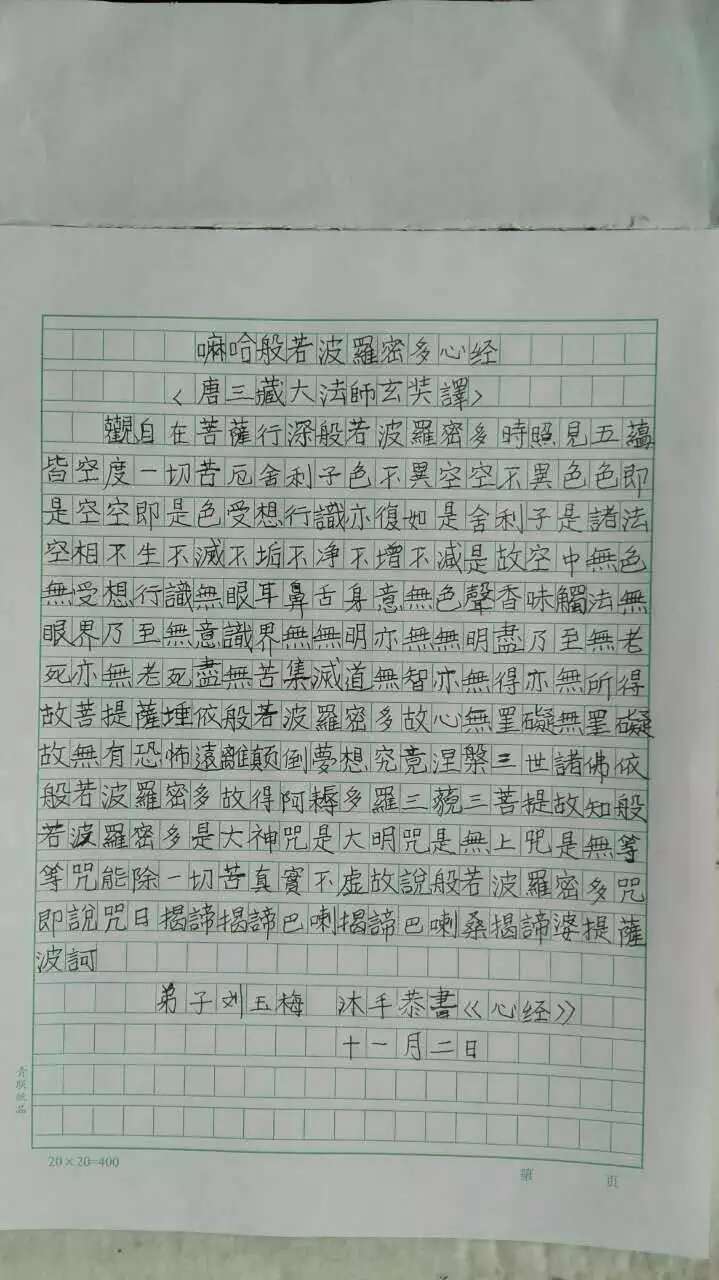 嘛哈般若波羅密多心经
〈唐三藏大法師玄奘譯〉
觀自在菩薩行深般若波羅密多時照見五蘊
皆空度一切苦厄舍利子色不異空空不異色色即
是空空即是色受想行識亦復如是舍利子是諸法
空相不生不滅不垢不净不增不減是故空中無色
無受想行識無眼耳鼻舌身意無色聲香味觸法無
眼界乃至無意識界無無明亦無無明盡乃至無老
死亦無老死盡無苦集滅道無智亦無得亦無所得
故菩提薩埵依般若波羅密多故心無罣礙無罣礙
故無有恐怖遠離颠倒夢想究竟涅槃三世諸佛依
般若波羅密多故得阿耨多羅三藐三菩提故知般
若波羅密多是大神咒是大明咒是無上咒是無等
等咒能除一切苦真實不虚故說般若波羅密多咒
即說咒日揭諦揭諦巴喇揭諦巴喇桑揭諦婆提薩
波訶
弟子刘玉梅 沐手恭書《心经》
十一月二日
青联纸品
20×20=400
第 页